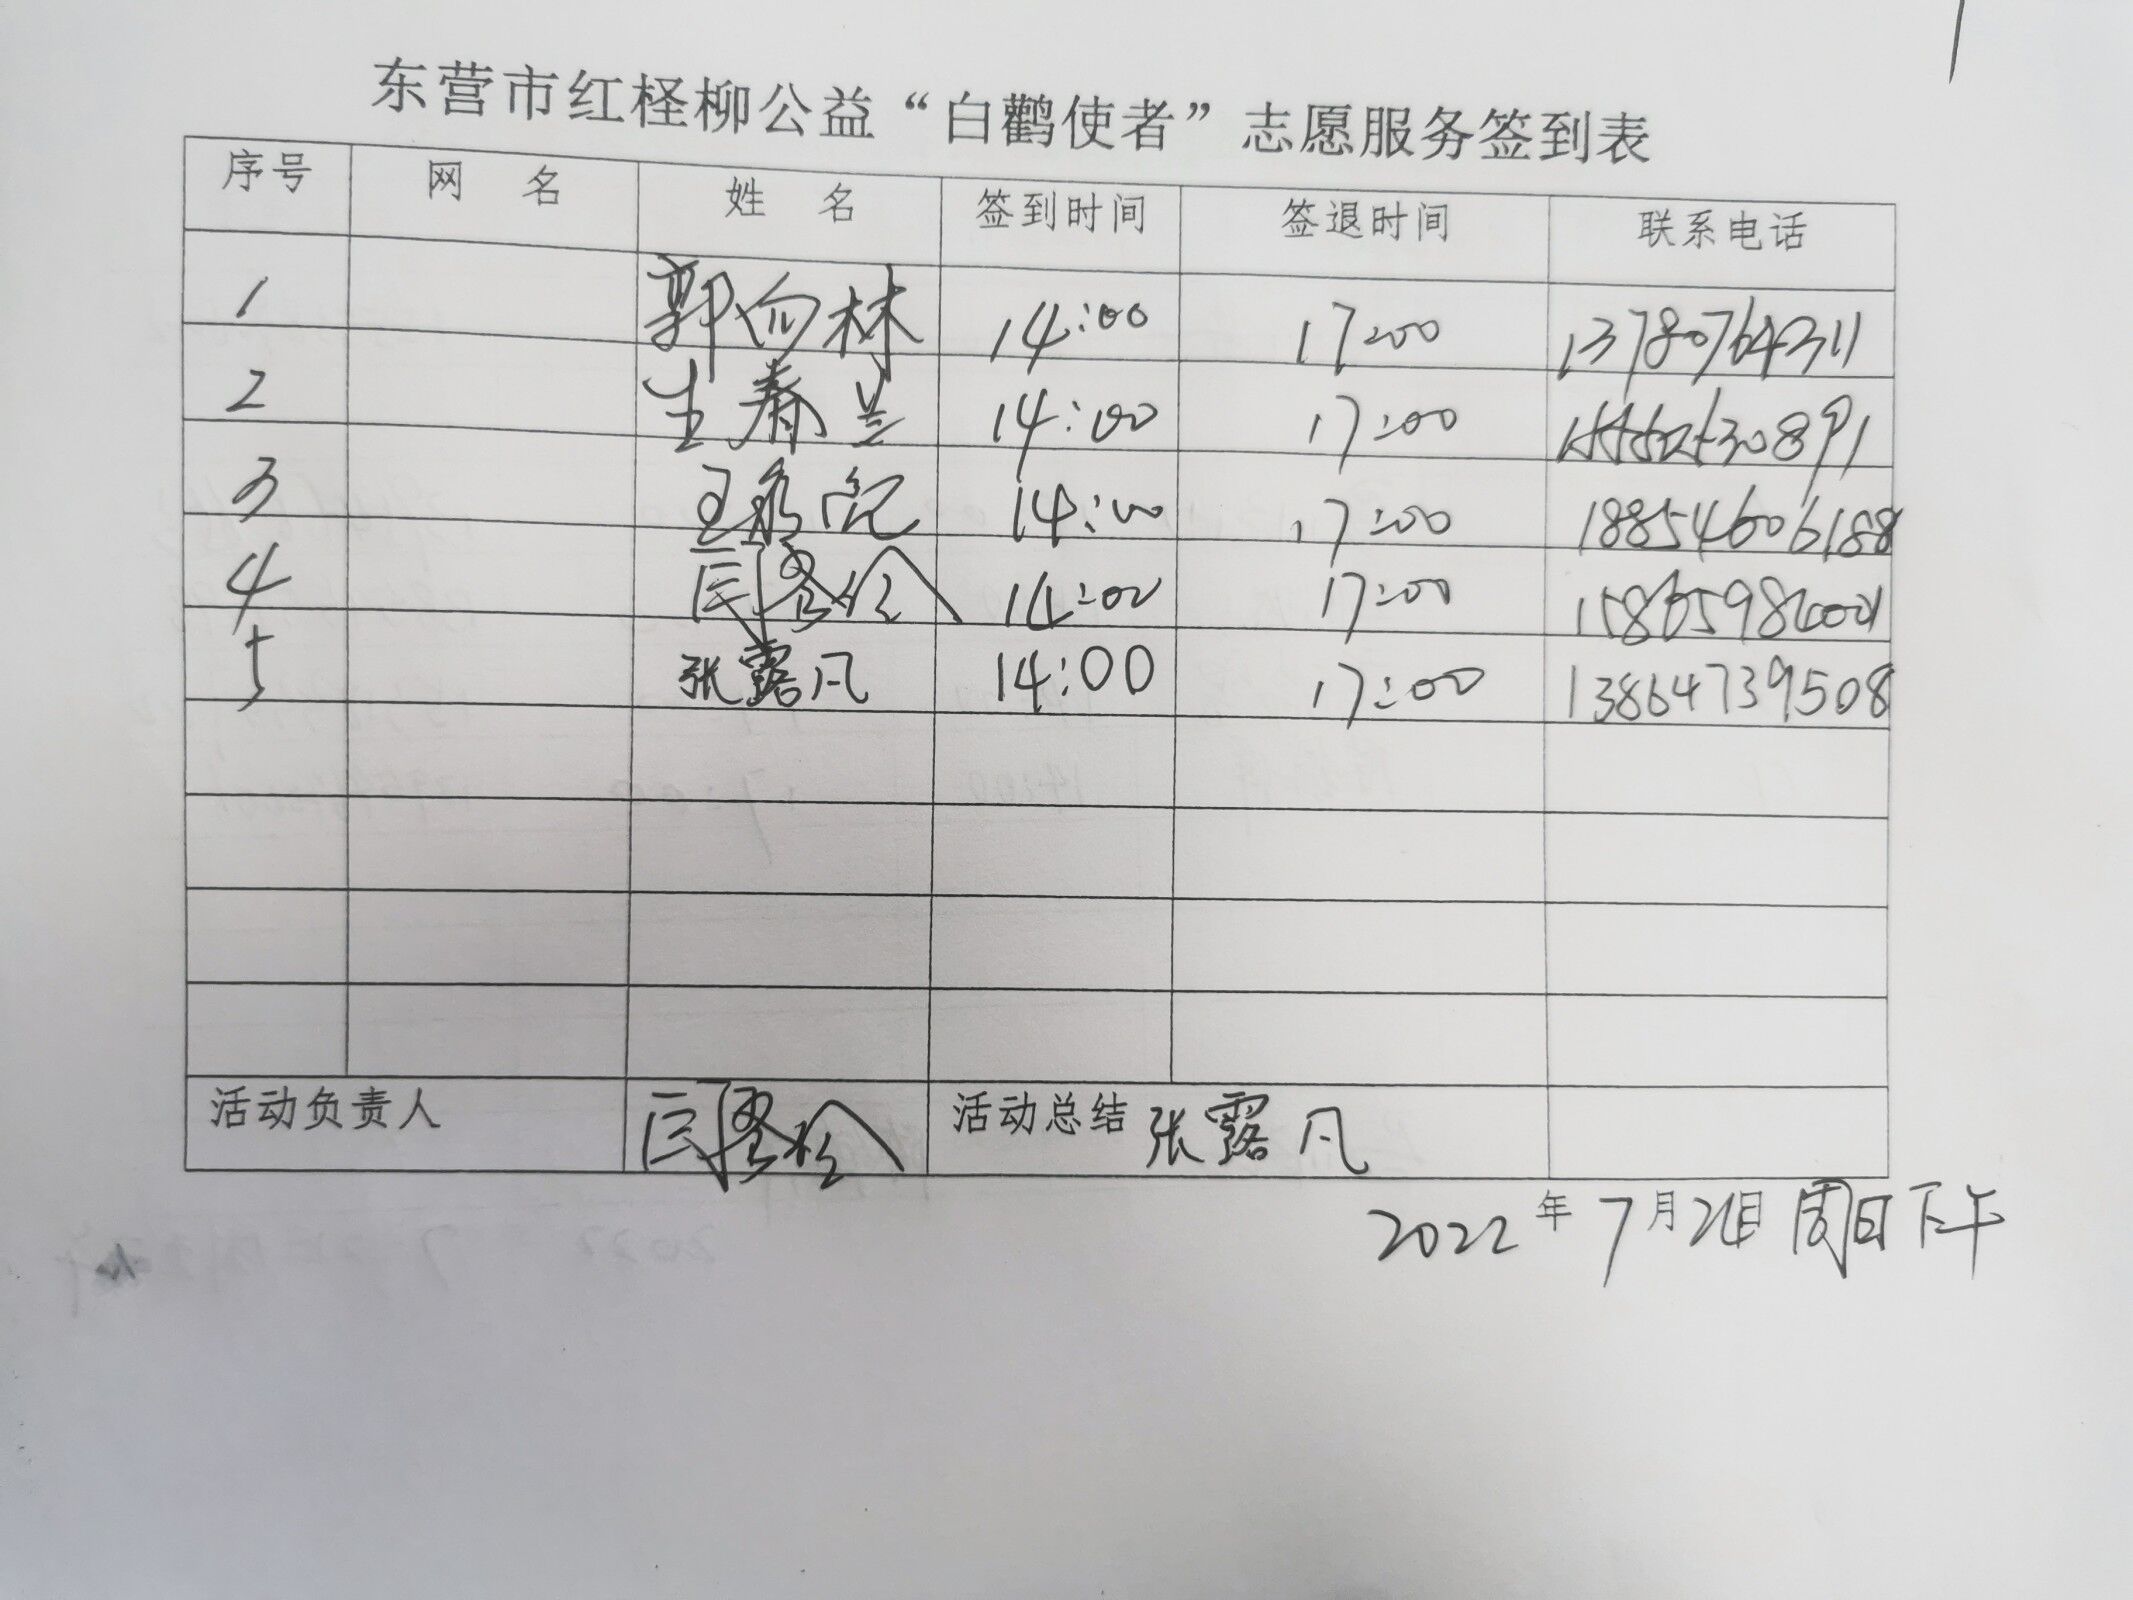 东营市红柽柳公益“白鹳使者”志愿服务签到表
序号 网 名 姓 名 签到时间 签退时间 联系电话
1 郭向林 14:00 17:00 13780764311
2 王春兰 14:00 17:00 15562630891
3 王 14:00 17:00 18854606188
4 14:00 17:00
5 张露凡 14:00 17:00 13864739508
活动负责人 活动总结 张露凡
2022年7月24日 周日下午